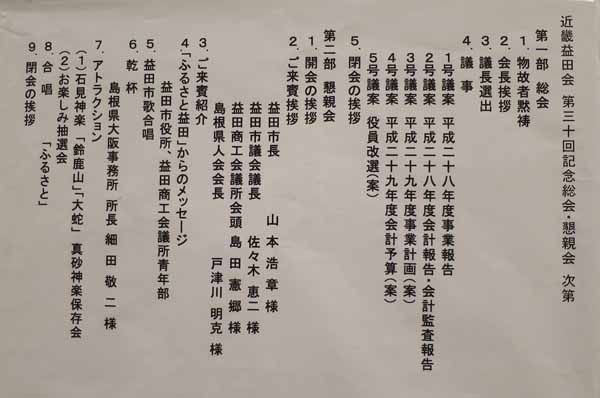 近畿益田会　第三十回記念総会・懇親会　次第
第一部　総会
１．物故者黙祷
２．会長挨拶
３．議長選出
４．議　事
１号議案　平成二十八年度事業報告
２号議案　平成二十八年度会計報告・会計監査報告
３号議案　平成二十九年度事業計画（案）
４号議案　平成二十九年度会計予算（案）
５号議案　役員改選（案）
５．閉会の挨拶
第二部　懇親会
１．開会の挨拶
２．ご来賓挨拶
益田市長　山本浩章様
益田市議会議長　佐々木惠二様
益田商工会議所会頭　島田憲郷様
島根県人会会長　戸津川明克様
３．ご来賓紹介
４．「ふるさと益田」からのメッセージ
益田市役所、益田商工会議所青年部
５．益田市歌合唱
６．乾　杯
島根県大阪事務所　所長　細田敬二様
７．アトラクション
（１）石見神楽「鈴鹿山」「大蛇」　真砂神楽保存会
（２）お楽しみ抽選会
８．合　唱　「ふるさと」
９．閉会の挨拶